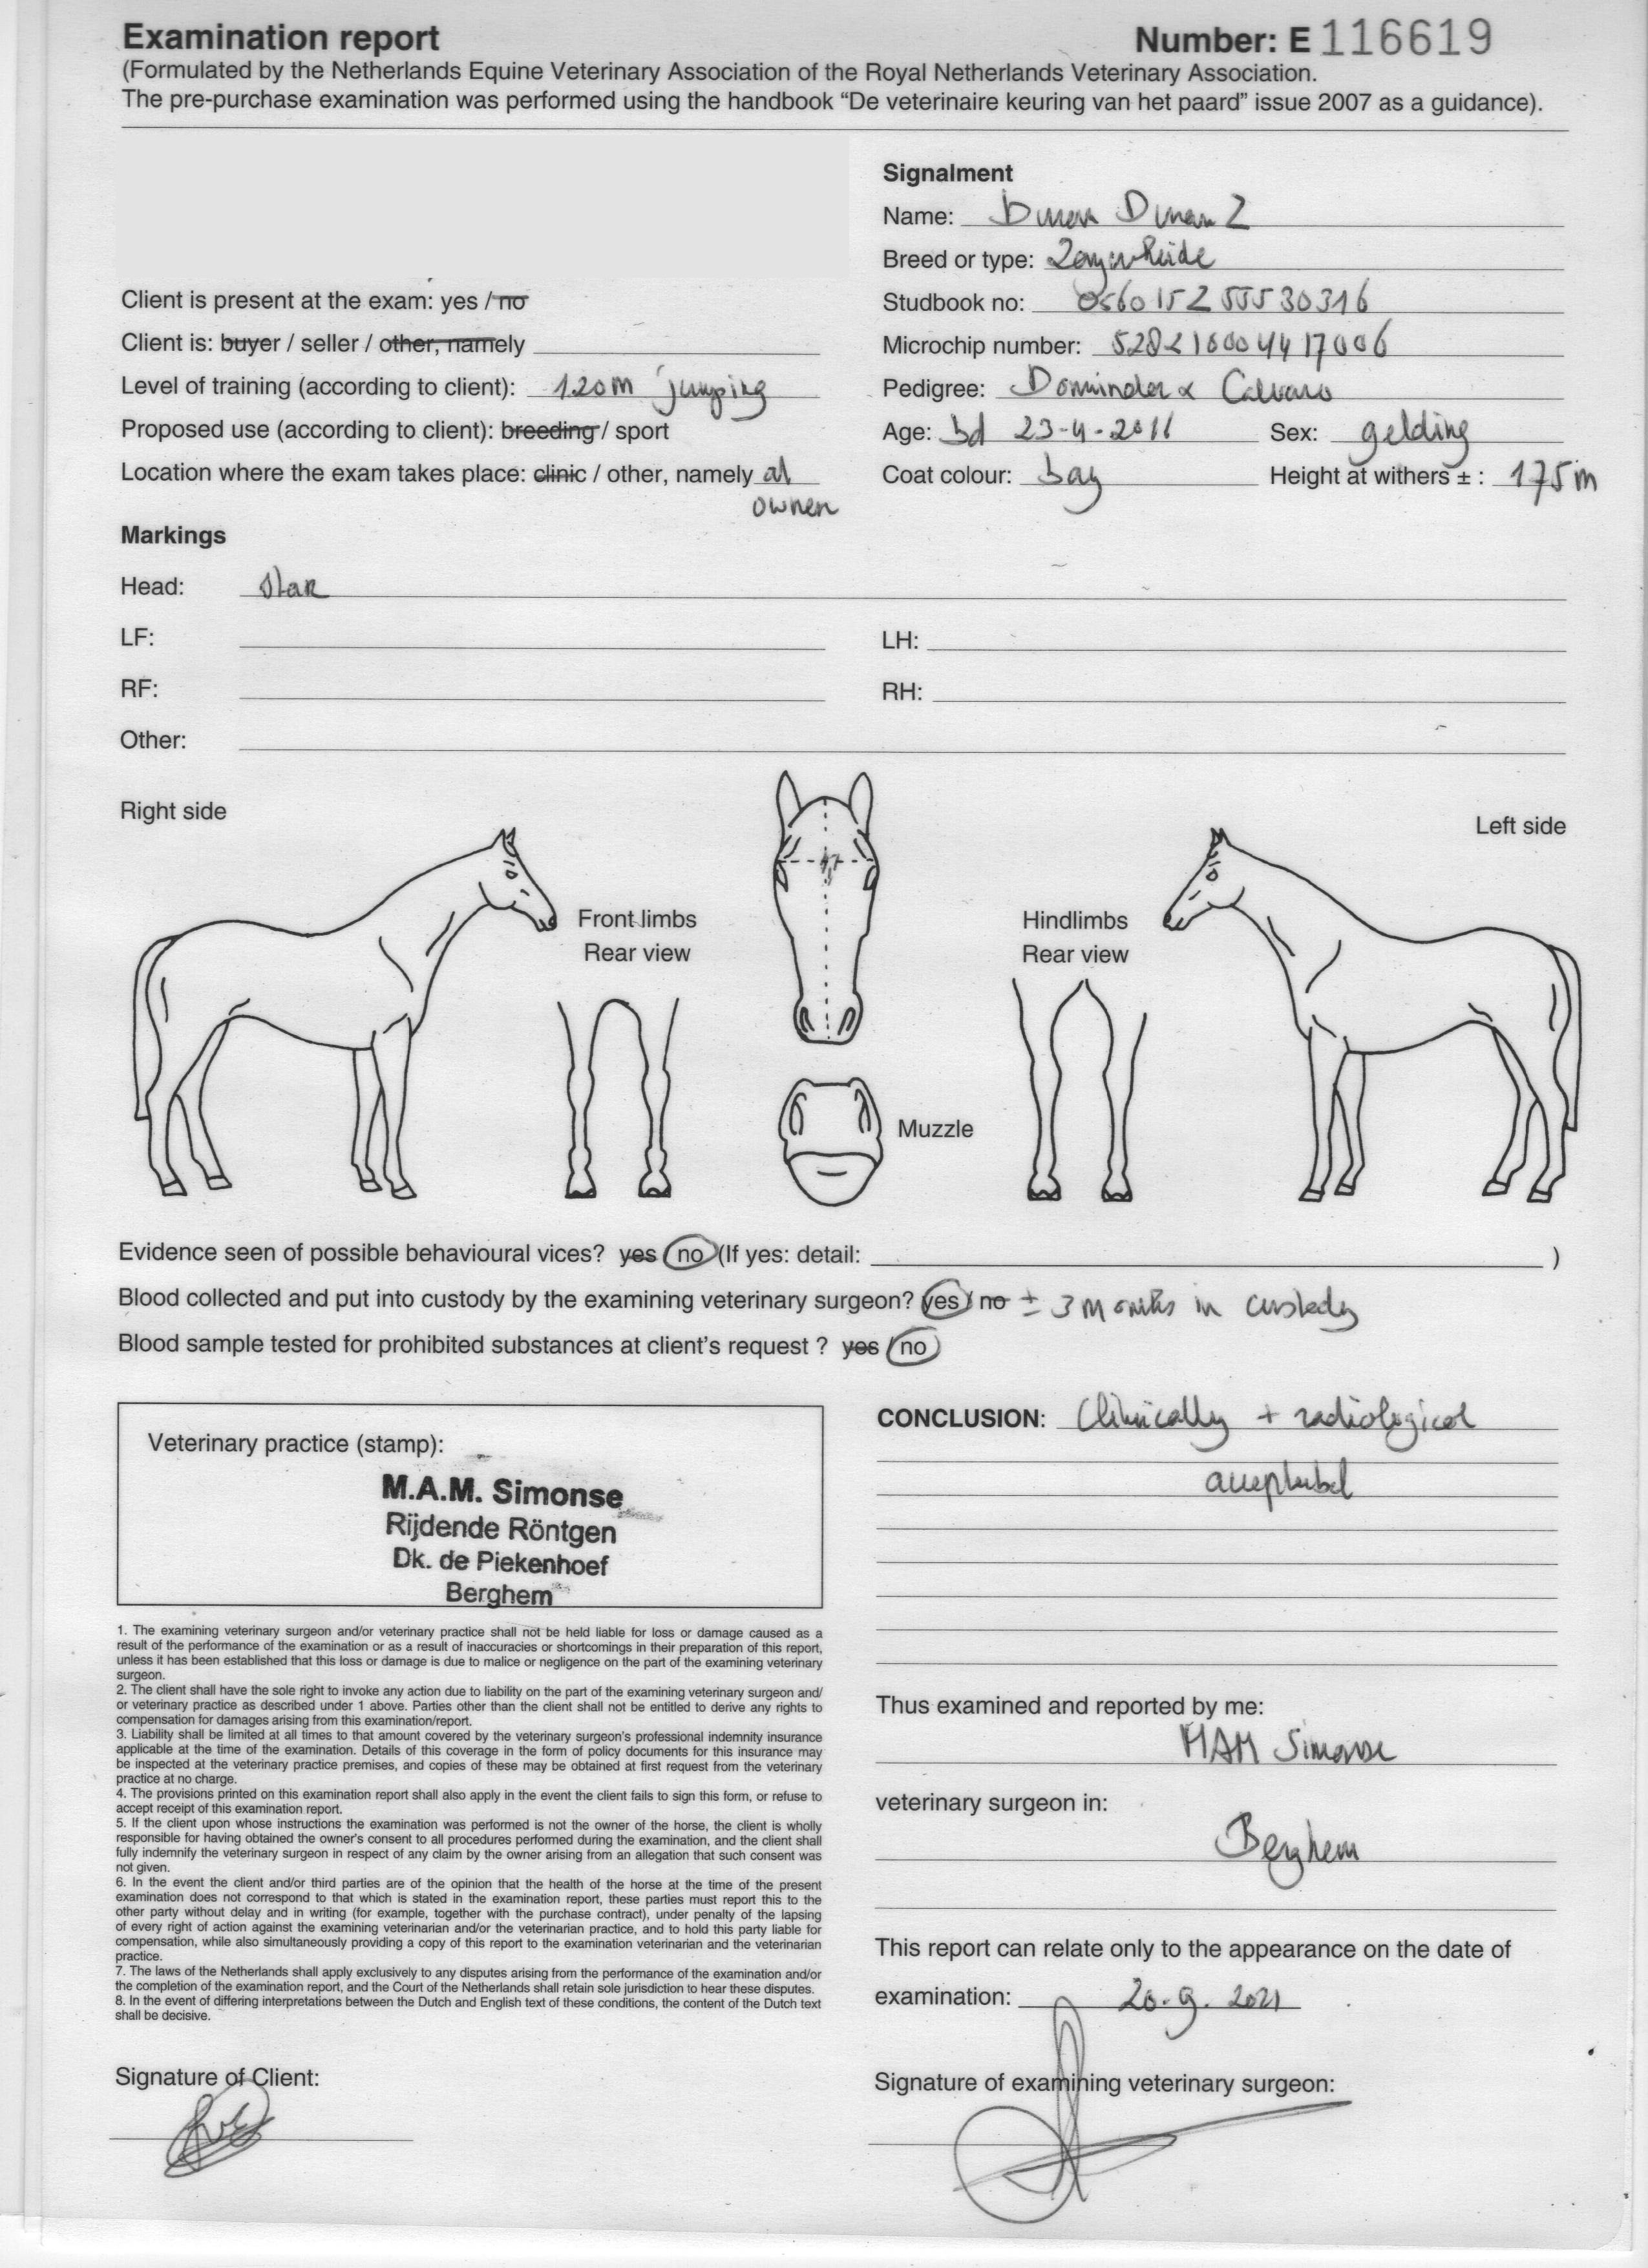 Examination report
Number: E 116619
(Formulated by the Netherlands Equine Veterinary Association of the Royal Netherlands Veterinary Association.
The pre-purchase examination was performed using the handbook “De veterinaire keuring van het paard” issue 2007 as a guidance).
Signalment
Name: Duran Duran Z
Breed or type: Zangersheide
Studbook no: 056015Z55530316
Client is present at the exam: yes / no
Client is: buyer / seller / other, namely
Microchip number: 528210004417006
Level of training (according to client): 1.20m jumping
Pedigree: x Calvaro
Proposed use (according to client): breeding / sport
Age: bd 23-4-2011 Sex: gelding
Location where the exam takes place: clinic / other, namely at
owner
Coat colour: bay Height at withers ± : 1,75 m
Markings
Head: star
LF: LH:
RF: RH:
Other:
Right side
Left side
Front limbs
Rear view
Hindlimbs
Rear view
Muzzle
Evidence seen of possible behavioural vices? yes / no (If yes: detail: )
Blood collected and put into custody by the examining veterinary surgeon? yes / no ± 3 months in custody
Blood sample tested for prohibited substances at client's request ? yes / no
Veterinary practice (stamp):
M.A.M. Simonse
Rijdende Röntgen
Dk. de Piekenhoef
Berghem
CONCLUSION: Clinically + radiological
acceptabel
1. The examining veterinary surgeon and/or veterinary practice shall not be held liable for loss or damage caused as a
result of the performance of the examination or as a result of inaccuracies or shortcomings in their preparation of this report,
unless it has been established that this loss or damage is due to malice or negligence on the part of the examining veterinary
surgeon.
2. The client shall have the sole right to invoke any action due to liability on the part of the examining veterinary surgeon and/
or veterinary practice as described under 1 above. Parties other than the client shall not be entitled to derive any rights to
compensation for damages arising from this examination/report.
3. Liability shall be limited at all times to that amount covered by the veterinary surgeon's professional indemnity insurance
applicable at the time of the examination. Details of this coverage in the form of policy documents for this insurance may
be inspected at the veterinary practice premises, and copies of these may be obtained at first request from the veterinary
practice at no charge.
4. The provisions printed on this examination report shall also apply in the event the client fails to sign this form, or refuse to
accept receipt of this examination report.
5. If the client upon whose instructions the examination was performed is not the owner of the horse, the client is wholly
responsible for having obtained the owner's consent to all procedures performed during the examination, and the client shall
fully indemnify the veterinary surgeon in respect of any claim by the owner arising from an allegation that such consent was
not given.
6. In the event the client and/or third parties are of the opinion that the health of the horse at the time of the present
examination does not correspond to that which is stated in the examination report, these parties must report this to the
other party without delay and in writing (for example, together with the purchase contract), under penalty of the lapsing
of every right of action against the examining veterinarian and/or the veterinary practice, and to hold this party liable for
compensation, while also simultaneously providing a copy of this report to the examination veterinarian and the veterinarian
practice.
7. The laws of the Netherlands shall apply exclusively to any disputes arising from the performance of the examination and/or
the completion of the examination report, and the Court of the Netherlands shall retain sole jurisdiction to hear these disputes.
8. In the event of differing interpretations between the Dutch and English text of these conditions, the content of the Dutch text
shall be decisive.
Thus examined and reported by me:
MAM Simonse
veterinary surgeon in:
Berghem
This report can relate only to the appearance on the date of
examination: 20-9-2021
Signature of Client:
Signature of examining veterinary surgeon: